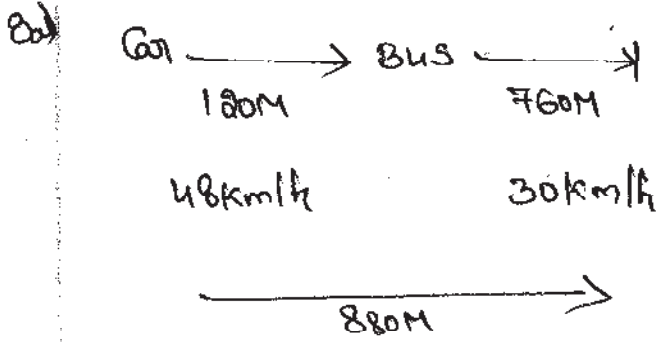 8a)
Car → BUS →
120M 760M
48km/h 30km/h
880M